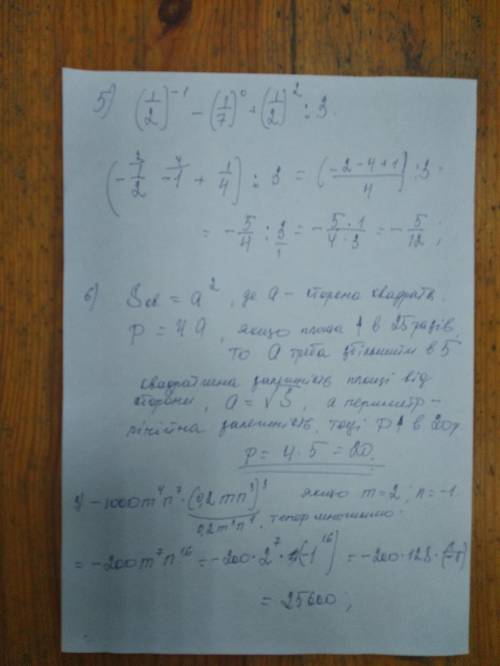 5) (1/2)^-1 - (1/7)^0 + (1/2)^2 : 3
(-1/2 -1 + 1/4) : 3 = (-2-4+1)/4 : 3 =
= -5/4 : 3/1 = -5·1/4·3 = -5/12 ;
6) Sкв = a^2, де a - сторона квадрата.
P = 4a, якщо площа ↑ в 25 разів,
то a треба збільшити в 5
квадратична залежність площі від
сторони, a = √S, а периметр -
лінійна залежність, тоді P↑ в 20р.
P = 4·5 = 20.
-1000m^4n^7 · (0,2mn^3)^3 якщо m=2; n=-1.
0,2m^3n^9. тепер множимо
= -200m^7n^16 = -200·2^7·(-1^16) = -200·128·(-1)
= 25600;